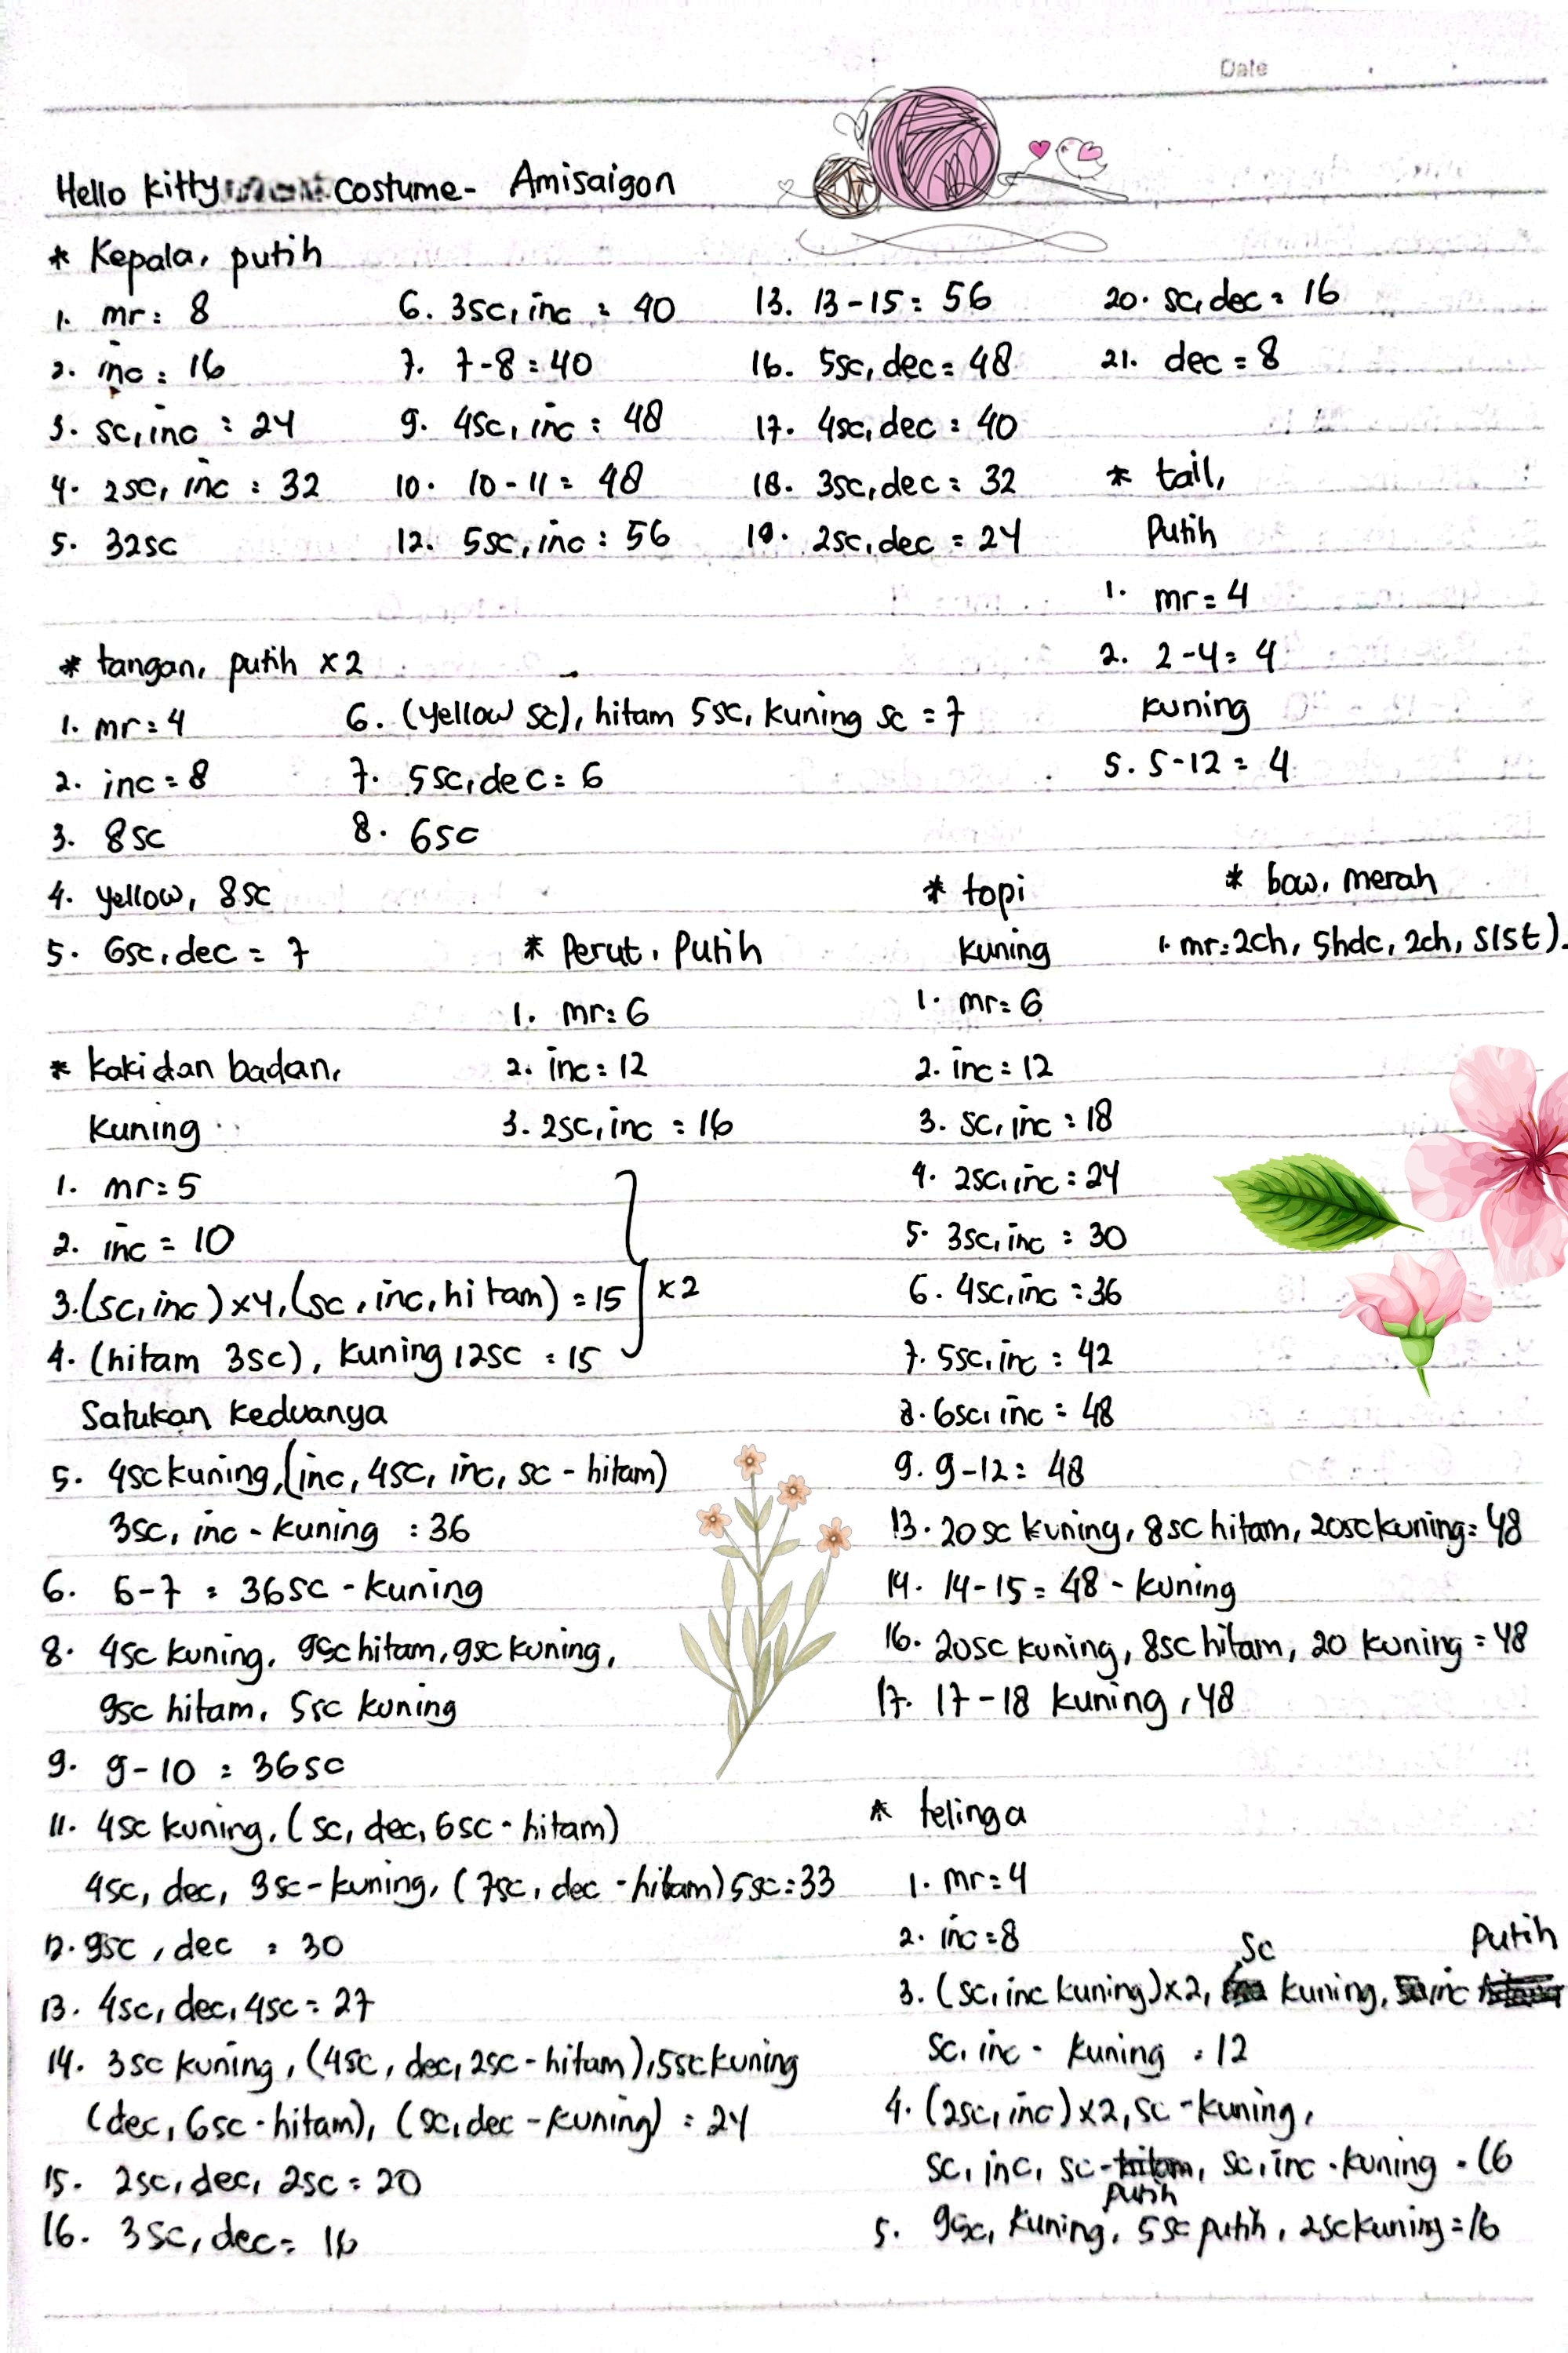 Date
Hello Kitty costume - Amisaigon
* Kepala, putih
1. mr = 8
2. inc = 16
3. sc, inc = 24
4. 2sc, inc = 32
5. 32sc
6. 3sc, inc = 40
7. 7-8 = 40
9. 4sc, inc = 48
10. 10-11 = 48
12. 5sc, inc = 56
13. 13-15 = 56
16. 5sc, dec = 48
17. 4sc, dec = 40
18. 3sc, dec = 32
19. 2sc, dec = 24
20. sc, dec = 16
21. dec = 8
* tail,
Putih
1. mr = 4
2. 2-4 = 4
kuning
5. 5-12 = 4
* tangan, putih x2
1. mr = 4
2. inc = 8
3. 8sc
4. yellow, 8sc
5. 6sc, dec = 7
6. (yellow sc), hitam 5sc, kuning sc = 7
7. 5sc, dec = 6
8. 6sc
* Perut, Putih
1. mr = 6
2. inc = 12
3. 2sc, inc = 16
* kaki dan badan,
kuning
1. mr = 5
2. inc = 10
3. (sc, inc) x4, (sc, inc, hitam) = 15
4. (hitam 3sc), kuning 12sc = 15
x2
Satukan keduanya
5. 4sc kuning, (inc, 4sc, inc, sc - hitam)
3sc, inc - kuning = 36
6. 6-7 = 36sc - kuning
8. 4sc kuning, 9sc hitam, 9sc kuning,
9sc hitam, 5sc kuning
9. 9-10 = 36sc
11. 4sc kuning, (sc, dec, 6sc - hitam)
4sc, dec, 3sc - kuning, (7sc, dec - hitam) 5sc = 33
12. 9sc, dec = 30
13. 4sc, dec, 4sc = 27
14. 3sc kuning, (4sc, dec, 2sc - hitam), 5sc kuning
(dec, 6sc - hitam), (sc, dec - kuning) = 24
15. 2sc, dec, 2sc = 20
16. 3sc, dec = 16
* topi
kuning
1. mr = 6
2. inc = 12
3. sc, inc = 18
4. 2sc, inc = 24
5. 3sc, inc = 30
6. 4sc, inc = 36
7. 5sc, inc = 42
8. 6sc, inc = 48
9. 9-12 = 48
13. 20sc kuning, 8sc hitam, 20sc kuning = 48
14. 14-15 = 48 - kuning
16. 20sc kuning, 8sc hitam, 20 kuning = 48
17. 17-18 kuning, 48
* bow, merah
1. mr: 2ch, 5hdc, 2ch, slst).
* telinga
1. mr = 4
2. inc = 8
3. (sc, inc kuning) x2, sc kuning, inc Putih
sc, inc - kuning = 12
4. (2sc, inc) x2, sc - kuning,
sc, inc, sc - putih, sc, inc - kuning = 16
5. 9sc, kuning, 5sc putih, 2sc kuning = 16